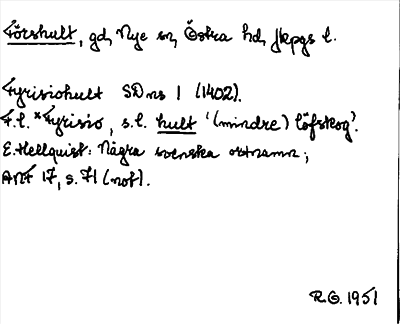 Förshult, gd, Nye sn, Östra hd, Jkpgs l.
Fyrisiohult SD ns 1 (1402).
F.l. *Fyrisio, s.l. hult '(mindre) löfskog'.
E. Hellquist: Några svenska ortnamn;
ANF 17, s. 71 (not).
R.G. 1951